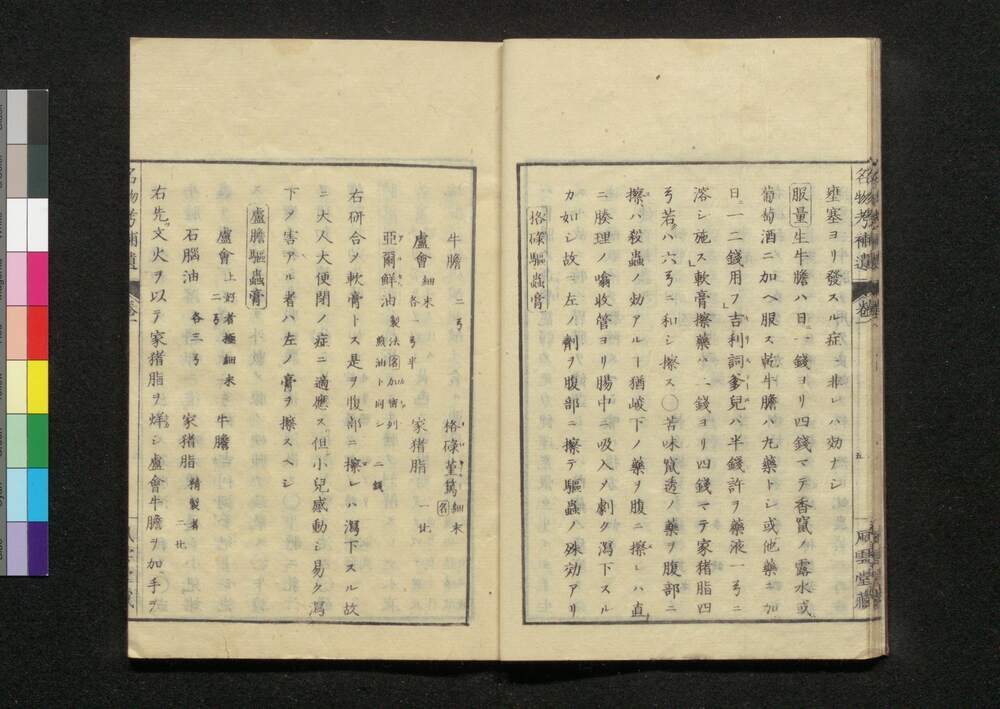 壅塞ヨリ發スル症ニ非レハ効ナシ
服量生牛膽ハ日ニ一錢ヨリ四錢マテ香竄ノ露水或
葡萄酒ニ加ヘ服ス乾牛膽ハ丸藥トシ或他藥ニ加
日ニ一二錢用フ」吉利詞爹兒ハ半錢許ヲ藥液一弓ニ
溶シ施ス」軟膏擦藥ハ二錢ヨリ四錢マテ家猪脂四
弓若ハ六弓ニ和シ擦ス〇苦味竄透ノ藥ヲ腹部ニ
擦ハ殺蟲ノ効アルヿ猶峻下ノ藥ヲ腹ニ擦レハ直
ニ腠理ノ噏收管ヨリ腸中ニ吸入メ劇ク瀉下スル
カ如シ故ニ左ノ劑ヲ腹部ニ擦テ驅蟲ノ殊効アリ
格碌驅蟲膏
名物考補遺
卷一
五
風雲堂藏
牛膽 二弓 格碌菫篤 細末 名
蘆會 細末 各一弓半 家猪脂 一比
亞爾鮮油 製法畧加密列煎油ト同シ 二錢
右研合メ軟膏トス是ヲ腹部ニ擦レハ瀉下スル故
ニ大人大便閉ノ症ニ適應ス但小兒感動シ易ク瀉
下ヲ害アル者ハ左ノ膏ヲ擦スヘシ
蘆膽驅蟲膏
蘆會 上好者極細末 二弓 牛膽
石腦油 各三弓 家猪脂 精製者 二比
右先文火ヲ以テ家猪脂ヲ烊シ蘆會牛膽ヲ加手ヲ
名物考補遺
卷一